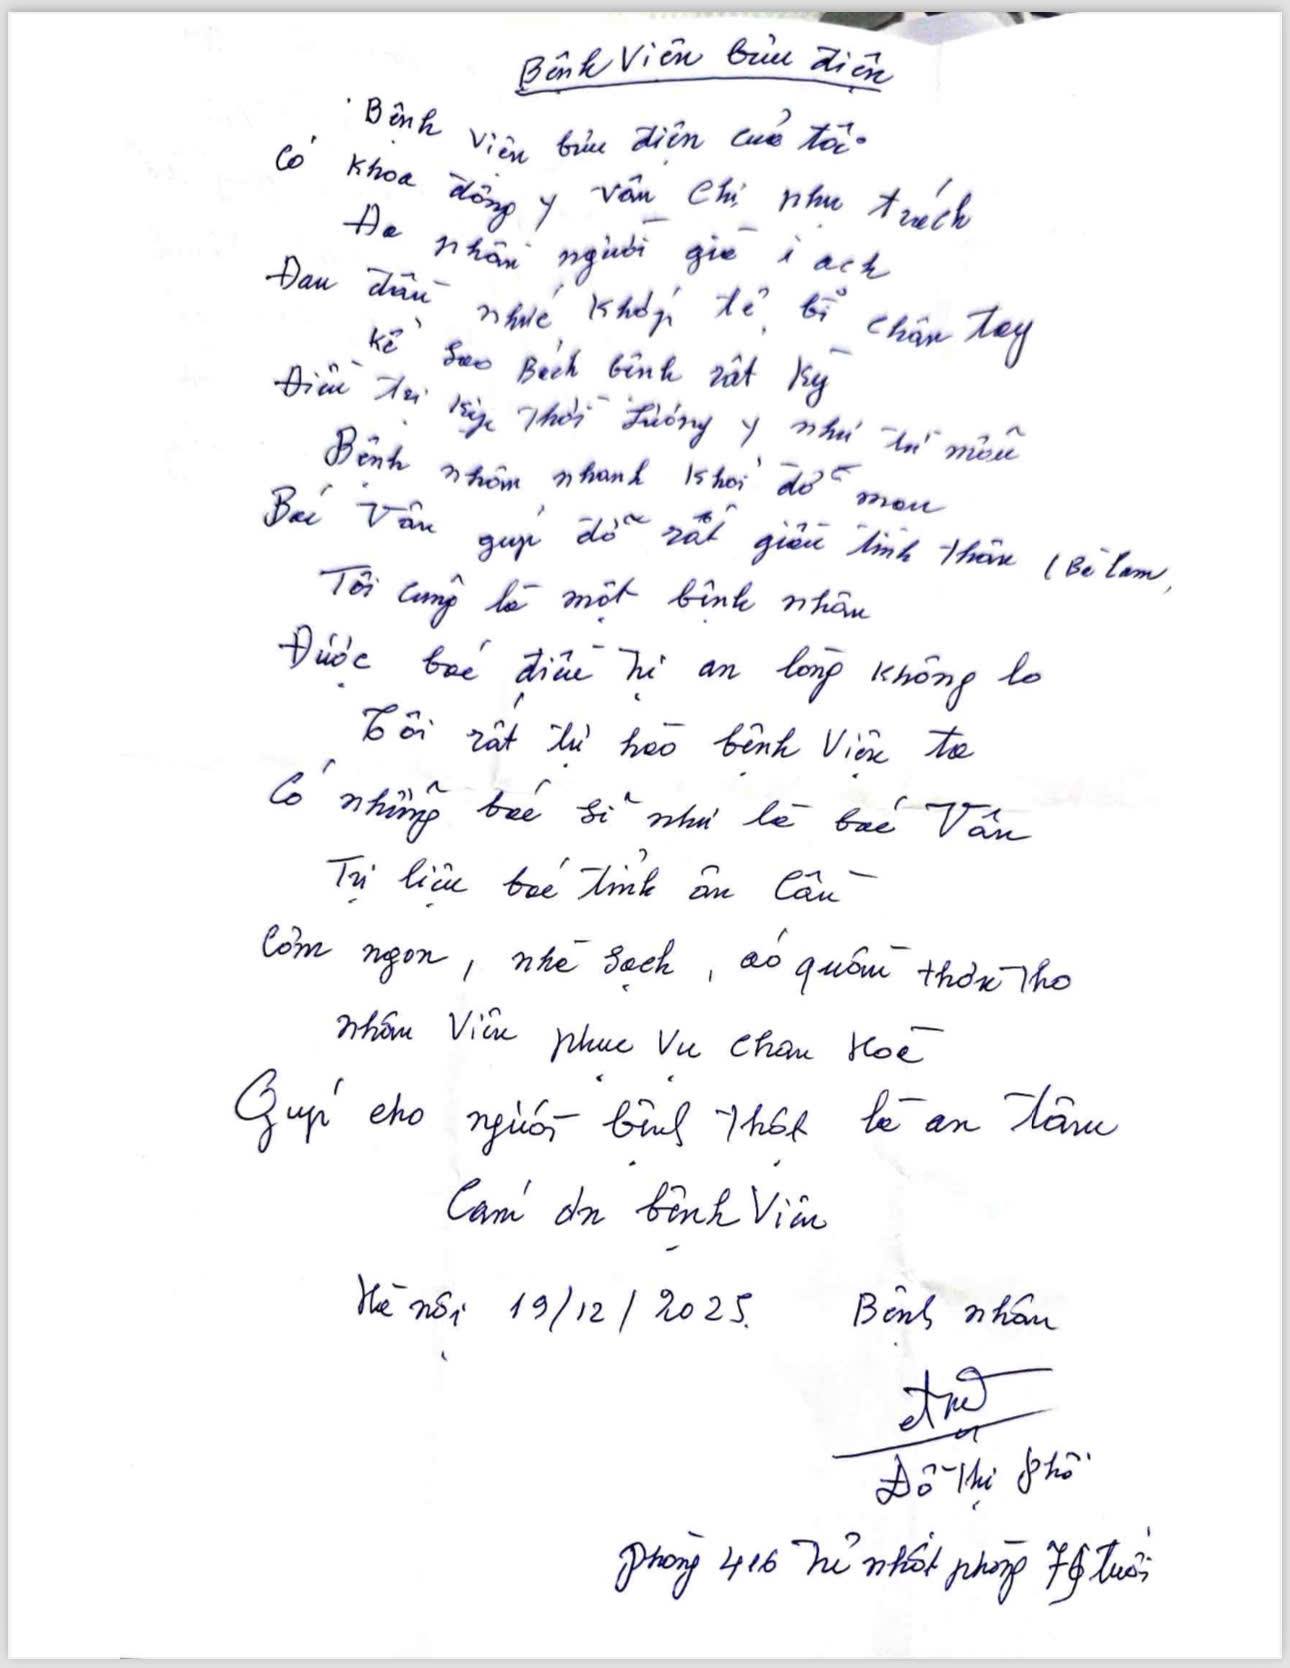 Bệnh Viện bưu điện
Bệnh viện bưu điện của tôi
Có khoa đông y Vân Chi phụ trách
Đa nhân người già ì ạch
Đau đầu nhức khớp tê bì chân tay
Kể sao Bách bệnh rất kỳ
Điều trị kịp thời Lương y như từ mẫu
Bệnh nhân nhanh khỏi đỡ mau
Bác Vân giúp đỡ rất giàu tinh thần (Bè lam,
Tôi cũng là một bệnh nhân
Được bác điều trị an lòng không lo
Tôi rất tự hào bệnh Viện ta
Có những bác sĩ như là bác Vân
Trị liệu bác tỉnh ân Cần
Cơm ngon, nhà sạch, áo quần thơm tho
nhân Viên phục vụ chan Hoà
Giúp cho người bệnh thật là an tâm
Cám ơn bệnh Viện
Hà nội 19/12/2025. Bệnh nhân
Đỗ Thị Phô
phòng 416 Trẻ nhất phòng 78 tuổi